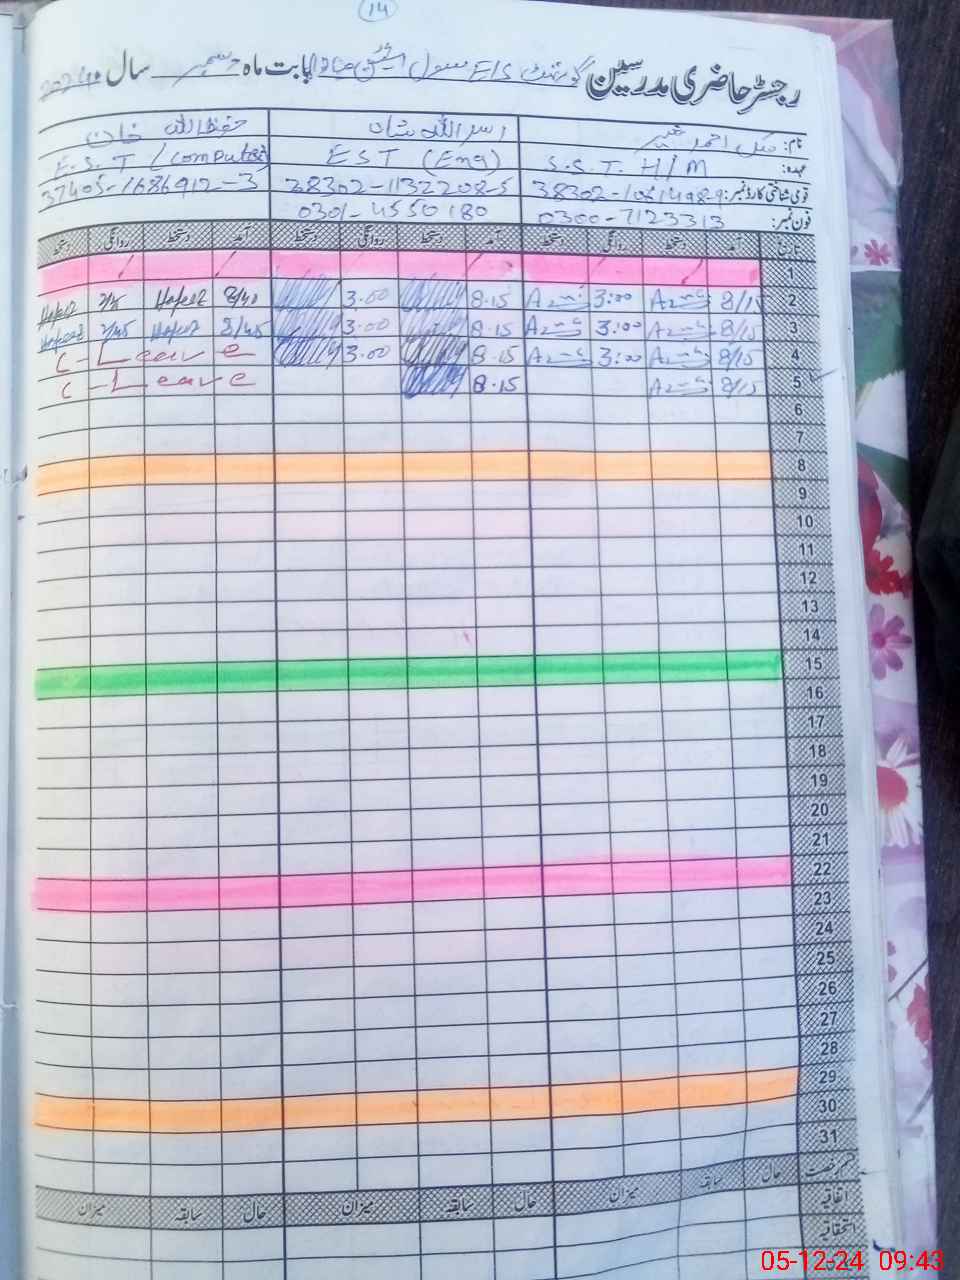 14
رجسٹر حاضری مدرسین گورنمنٹ E/S بابت ماہ دسمبر سال 2024
نام: ملک احمد شیر
اسد اللہ شاہ
حفیظ اللہ خان
عہدہ: S.S.T. H/M
EST (Eng)
E.S.T / Computer
قومی شناختی کارڈ نمبر:
38302-1132208-5
37405-1686912-3
فون نمبر: 0300-7123313
0301-4550180
تاریخ آمد دستخط روانگی دستخط آمد دستخط روانگی دستخط آمد دستخط روانگی دستخط
1
2 8/15 3:00 8.15 3.00 8/40 Hafeez Hafeez
3 8/15 3:00 8.15 3.00 8/45 Hafeez 2/45 Hafeez
4 8/15 3:00 8.15 3.00 C - Leave
5 8/15 8.15 C - Leave
6
7
8
9
10
11
12
13
14
15
16
17
18
19
20
21
22
23
24
25
26
27
28
29
30
31
قسم رخصت حال سابقہ میزان حال سابقہ میزان حال سابقہ میزان
اتفاقیہ
استحقاقیہ
05-12-24 09:43